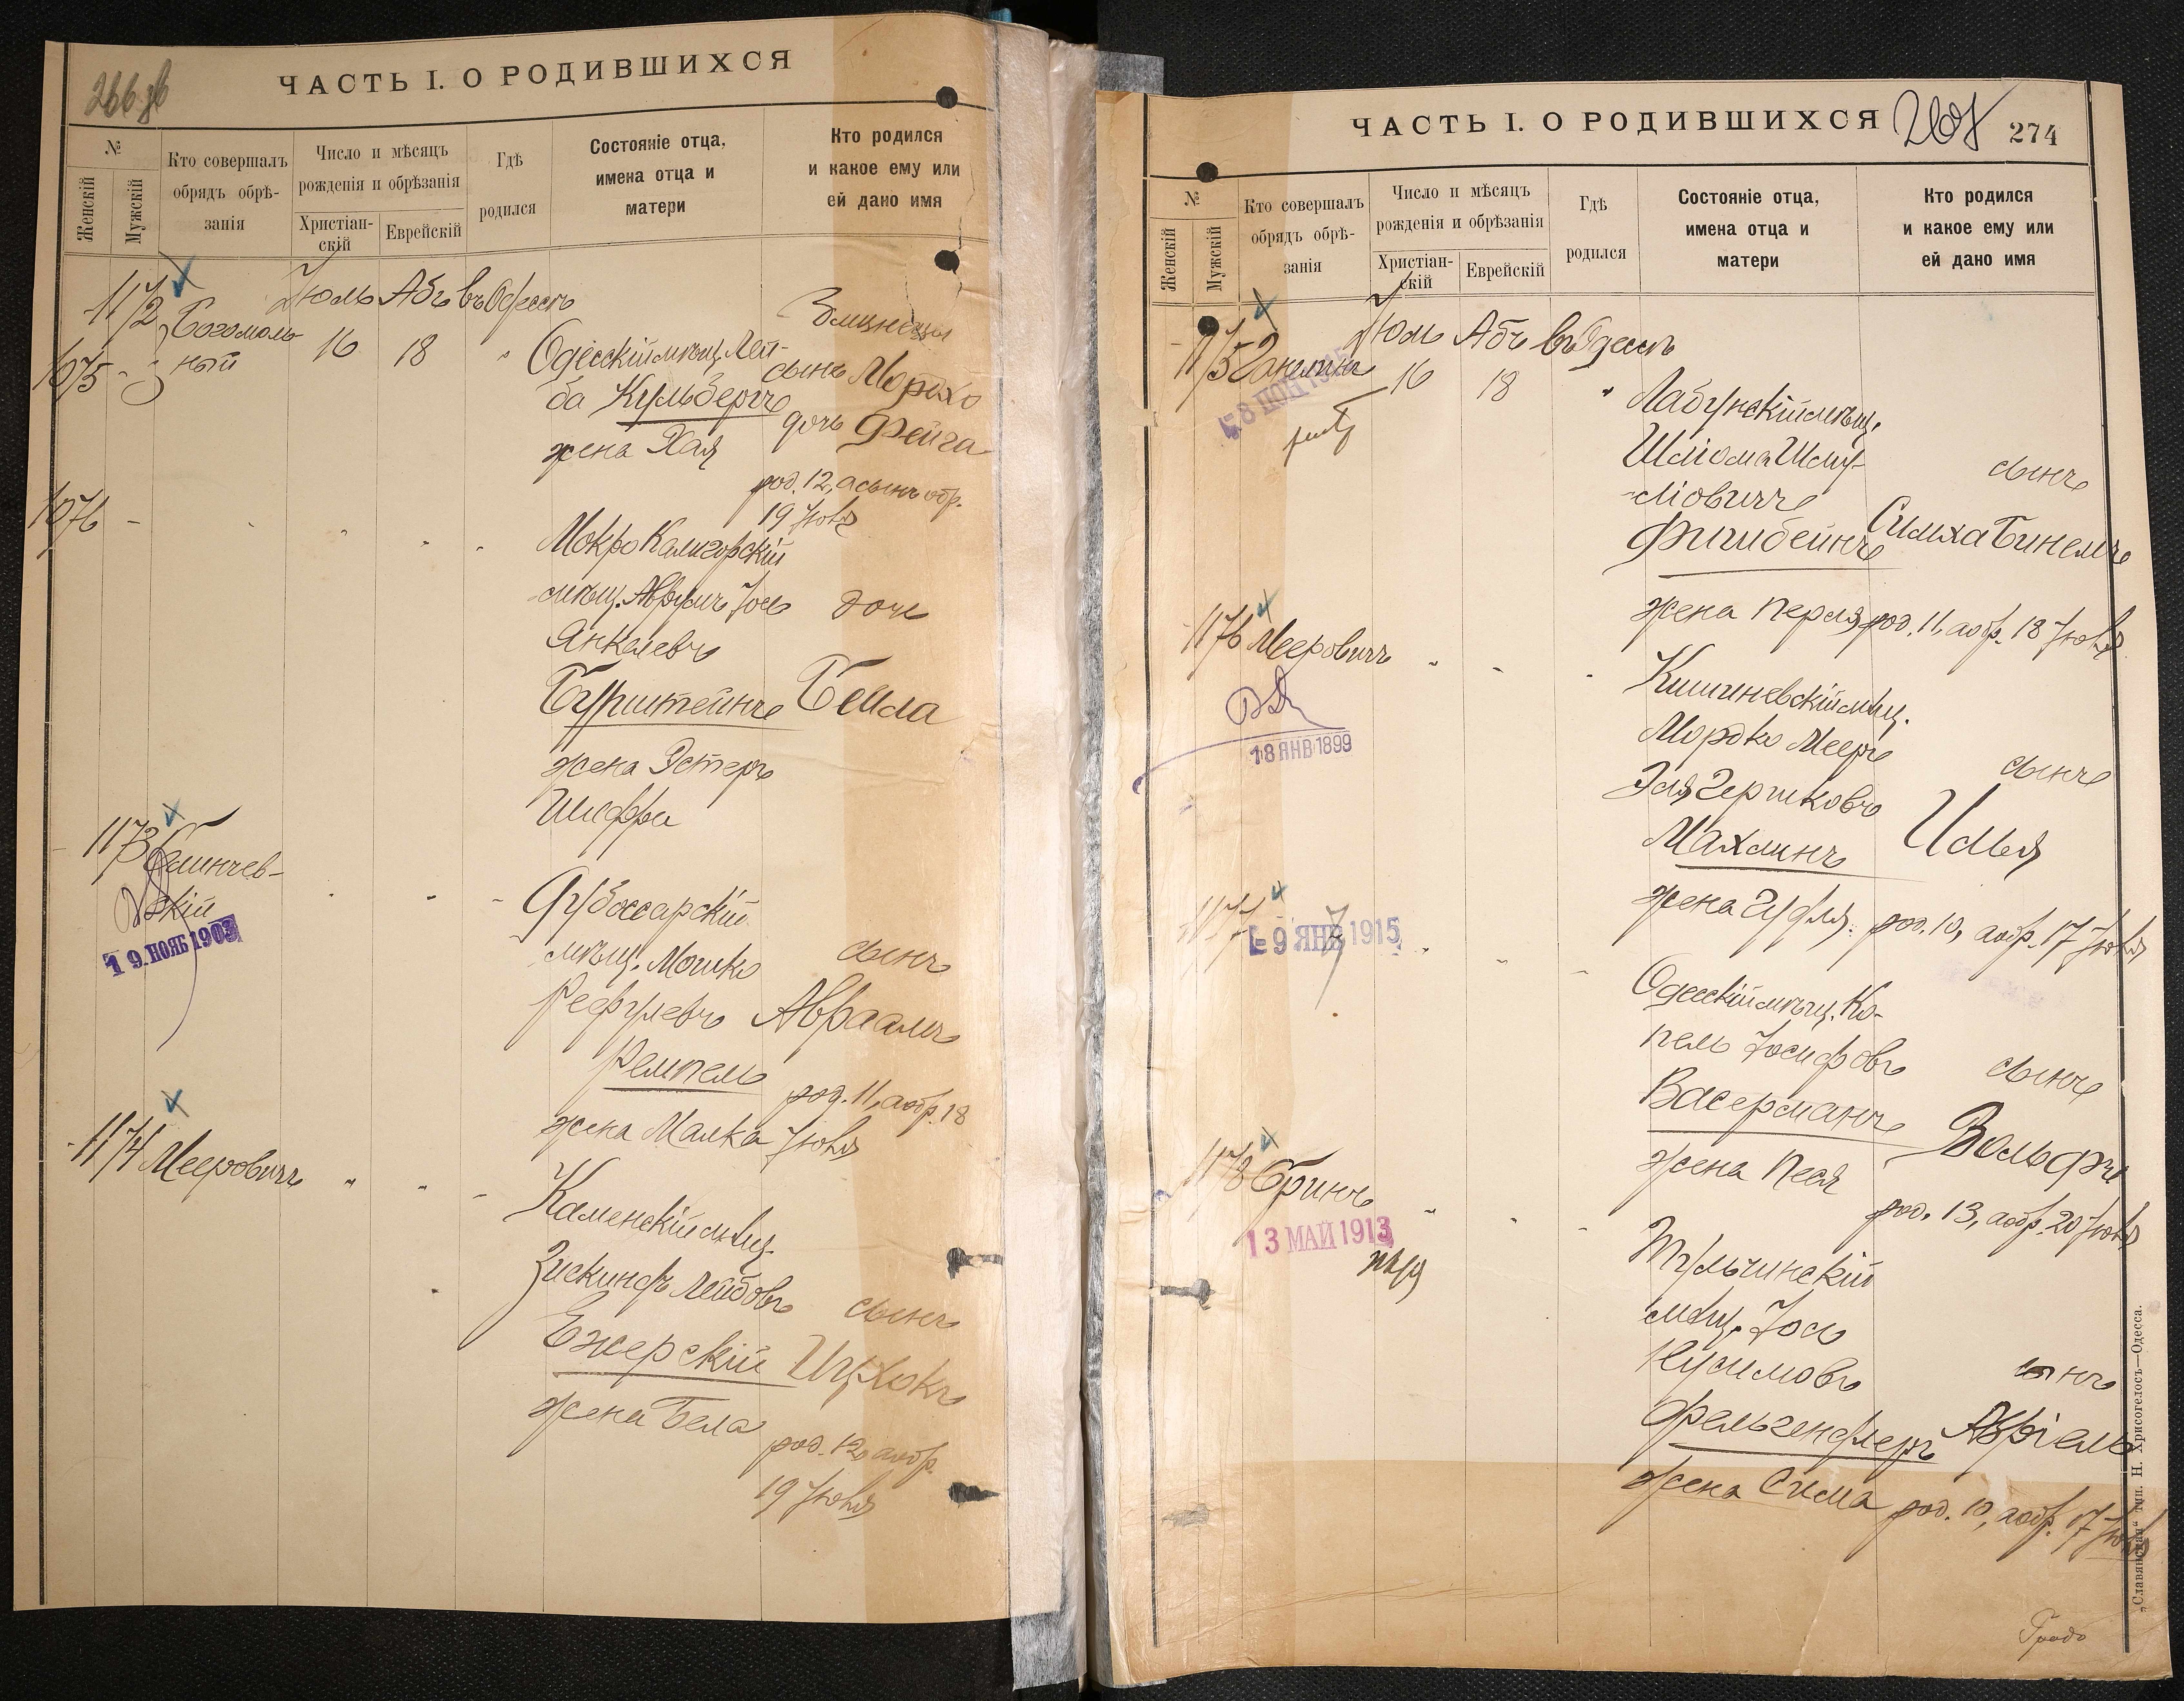 266 об
ЧАСТЬ I. О РОДИВШИХСЯ
№
Женскій
Мужскій
Кто совершалъ
обрядъ обрѣ-
занія
Число и мѣсяцъ
рожденія и обрѣзанія
Христіан-
скій
Еврейскій
Гдѣ
родился
Состояніе отца,
имена отца и
матери
Кто родился
и какое ему или
ей дано имя
1172
Богомоль-
ный
Іюль Абъ въ Одессѣ
16 18 "
1075 -
Одесскій мѣщ. Лей-
ба Кульбергъ
жена Хая
Близнецы
сынъ Мордко
дочь Фейга
род. 12, а сынъ обр.
19 Іюля
1076 -
Мокро Калигорскій
мѣщ. Аврумъ Іось
Янкелевъ
Бурштейнъ
жена Эстеръ
Шифра
дочь
Бейла
1173
скій
19 НОЯБ 1903
Дубоссарскій
мѣщ. Мошко
Рефулевъ
Ремпель
жена Малка
сынъ
Авраамъ
род. 11, а обр. 18
Іюля
1174 Мееровичъ " " -
Каменскій мѣщ.
Зискиндъ Лейбовъ
Ежерскій
жена Бела
сынъ
Ицхокъ
род. 12, а обр.
19 Іюля
ЧАСТЬ I. О РОДИВШИХСЯ
267
274
№
Женскій
Мужскій
Кто совершалъ
обрядъ обрѣ-
занія
Число и мѣсяцъ
рожденія и обрѣзанія
Христіан-
скій
Еврейскій
Гдѣ
родился
Состояніе отца,
имена отца и
матери
Кто родился
и какое ему или
ей дано имя
1175
Іюль Абъ въ Одессѣ
16 18 "
Лабунскій мѣщ.
Шліома Шму-
ліовичъ
Фишбейнъ
жена Перля
сынъ
Симха Бинемъ
род. 11, а обр. 18 Іюля
1176 Мееровичъ " - -
18 ЯНВ 1899
Кишиневскій мѣщ.
Мордко Мееръ
Эля Гершковъ
Махлинъ
жена Идля
сынъ
Илья
род. 10, а обр. 17 Іюля
1177
9 ЯНВ 1915
Одесскій мѣщ. Ко-
пель Іосифовъ
Васерманъ
жена Песя
сынъ
Вольфъ
род. 13, а обр. 20 Іюля
1178 Гринъ " " -
13 МАЙ 1913
Тульчинскій
мѣщ. Іось
Нусимовъ
Фельгендлеръ
жена Сима
сынъ
Авріель
род. 10, а обр. 17 Іюля
„Славянская“ тип. Н. Хрисогелосъ—Одесса.